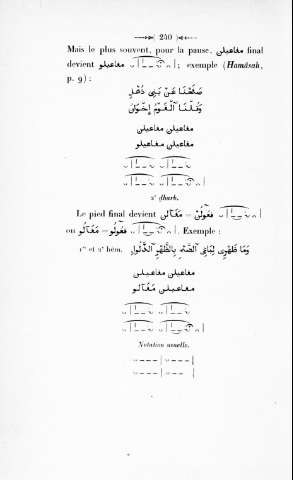 240
Mais le plus souvent, pour la pause, مفاعيلن final
devient مفاعيلو; exemple (Hamâsah,
p. 9) :
صَفَحْنَا عَنْ بَنِي ذُهْلٍ
وَقُلْنَا ٱلْقَوْمُ إِخْوَانُ
مفاعيلن مفاعيلن
مفاعيلن مفاعيلو
2e dharb.
Le pied final devient فعولن = مفالن
ou فعولو = مفالو. Exemple :
1er et 2e hém. وَمَا ظَهْرِى لِبَاغِى ٱلضَّيْمِ بِٱلظَّهْرِ ٱلذَّلُولِ
مفاعيلن مفاعيلن
مفاعيلن مفالو
Notation usuelle.